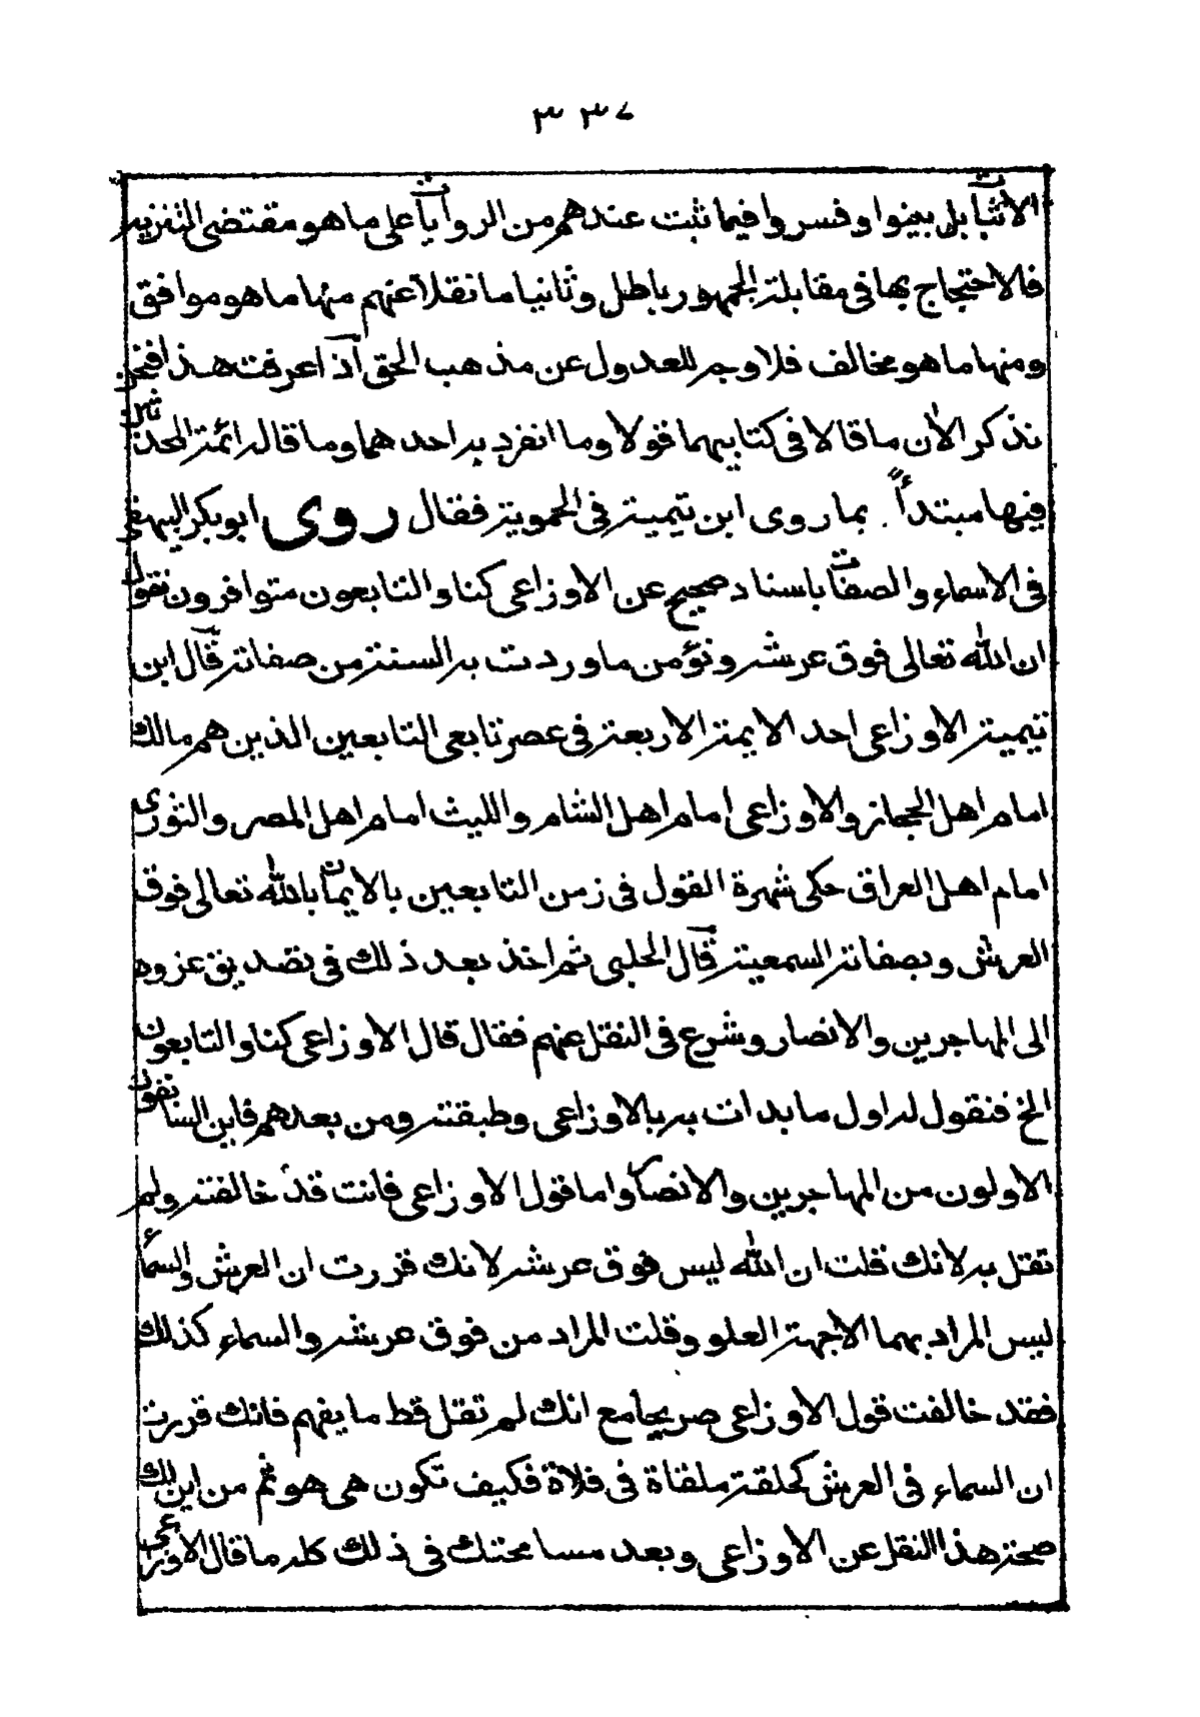 ٣٣٧
الاثبات بل بينوا وفسروا فيما ثبت عندهم من الروايات على ما هو مقتضى التنزيه
فلا احتجاج بها فى مقابلة الجمهور باطل وثانيا ما نقلا عنهم منها ما هو موافق
ومنها ما هو مخالف فلا وجه للعدول عن مذهب الحق اذا عرفت هذا فنحن
نذكر الان ما قالا فى كتابيهما قولا وما انفرد به احدهما وما قاله ائمة المحدثين
فيها مبتدأً بما روى ابن تيمية فى الحموية فقال روى ابو بكر البيهقى
فى الاسماء والصفات باسناد صحيح عن الاوزاعى كنا والتابعون متوافرون نقول
ان الله تعالى فوق عرشه ونؤمن ما وردت به السنة من صفاته قال ابن
تيمية الاوزاعى احد الايمة الاربعة فى عصر تابعى التابعين الذين هم مالك
امام اهل الحجاز والاوزاعى امام اهل الشام والليث امام اهل المصر والثورى
امام اهل العراق حكى شهرة القول فى زمن التابعين بالايمان بالله تعالى فوق
العرش وبصفاته السمعية قال الحلبى ثم اخذ بعد ذلك فى تصديق عزوه
الى المهاجرين والانصار وشرع فى النقل عنهم فقال قال الاوزاعى كنا والتابعون
الخ فنقول له اول ما بدات به بالاوزاعى وطبقته ومن بعدهم فاين السابقون
الاولون من المهاجرين والانصار واما قول الاوزاعى فانت قد خالفته ولم
تقل به لانك قلت ان الله ليس فوق عرشه لانك قررت ان العرش والسماء
ليس المراد بهما الا جهة العلو وقلت المراد من فوق عرشه والسماء كذلك
فقد خالفت قول الاوزاعى صريحا مع انك لم تقل قط ما يفهم فانك قررت
ان السماء فى العرش كحلقة ملقاة فى فلاة فكيف تكون هى هو ثم من اين لك
صحة هذا النقل عن الاوزاعى وبعد مسامحتك فى ذلك كله ما قال الاوزاعى